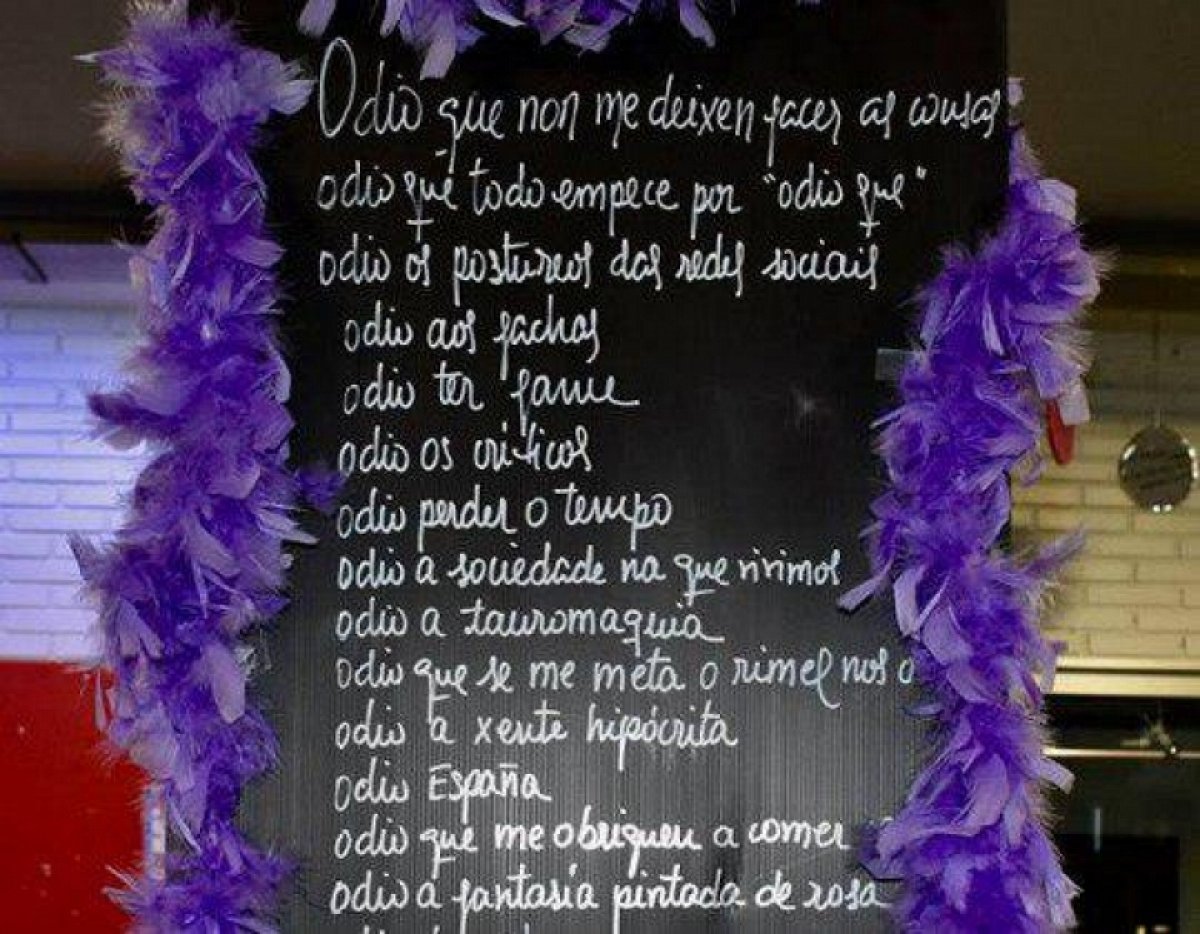 Odio que non me deixen facer as cousas
odio que todo empece por "odio que"
odio os postureos das redes sociais
odio aos fachas
odio ter fame
odio os críticos
odio perder o tempo
odio a sociedade na que vivimos
odio a tauromaquia
odio que se me meta o rimel nos o
odio a xente hipócrita
odio España
odio que me obriguen a comer
odio a fantasía pintada de rosa